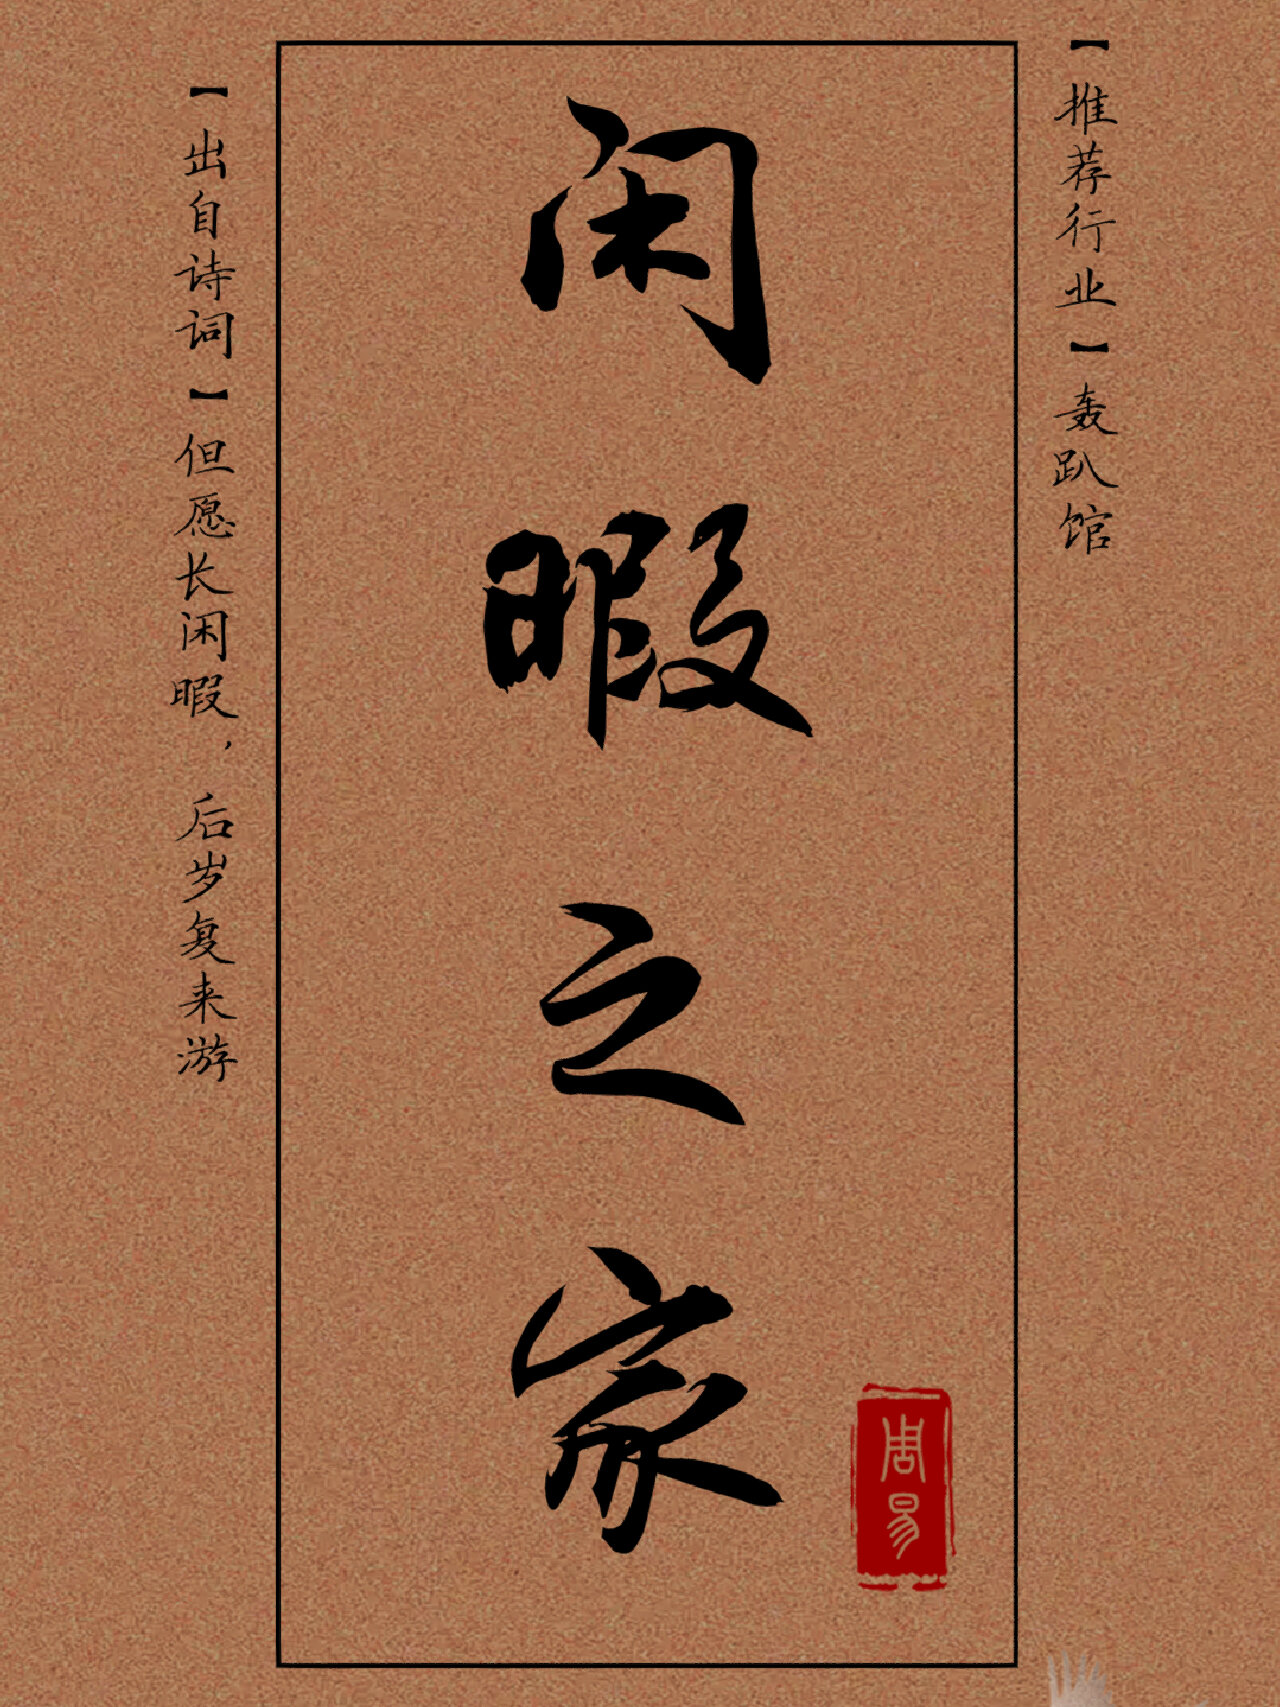 【推荐行业】轰趴馆
闲暇之家
周易
【出自诗词】但愿长闲暇，后岁复来游